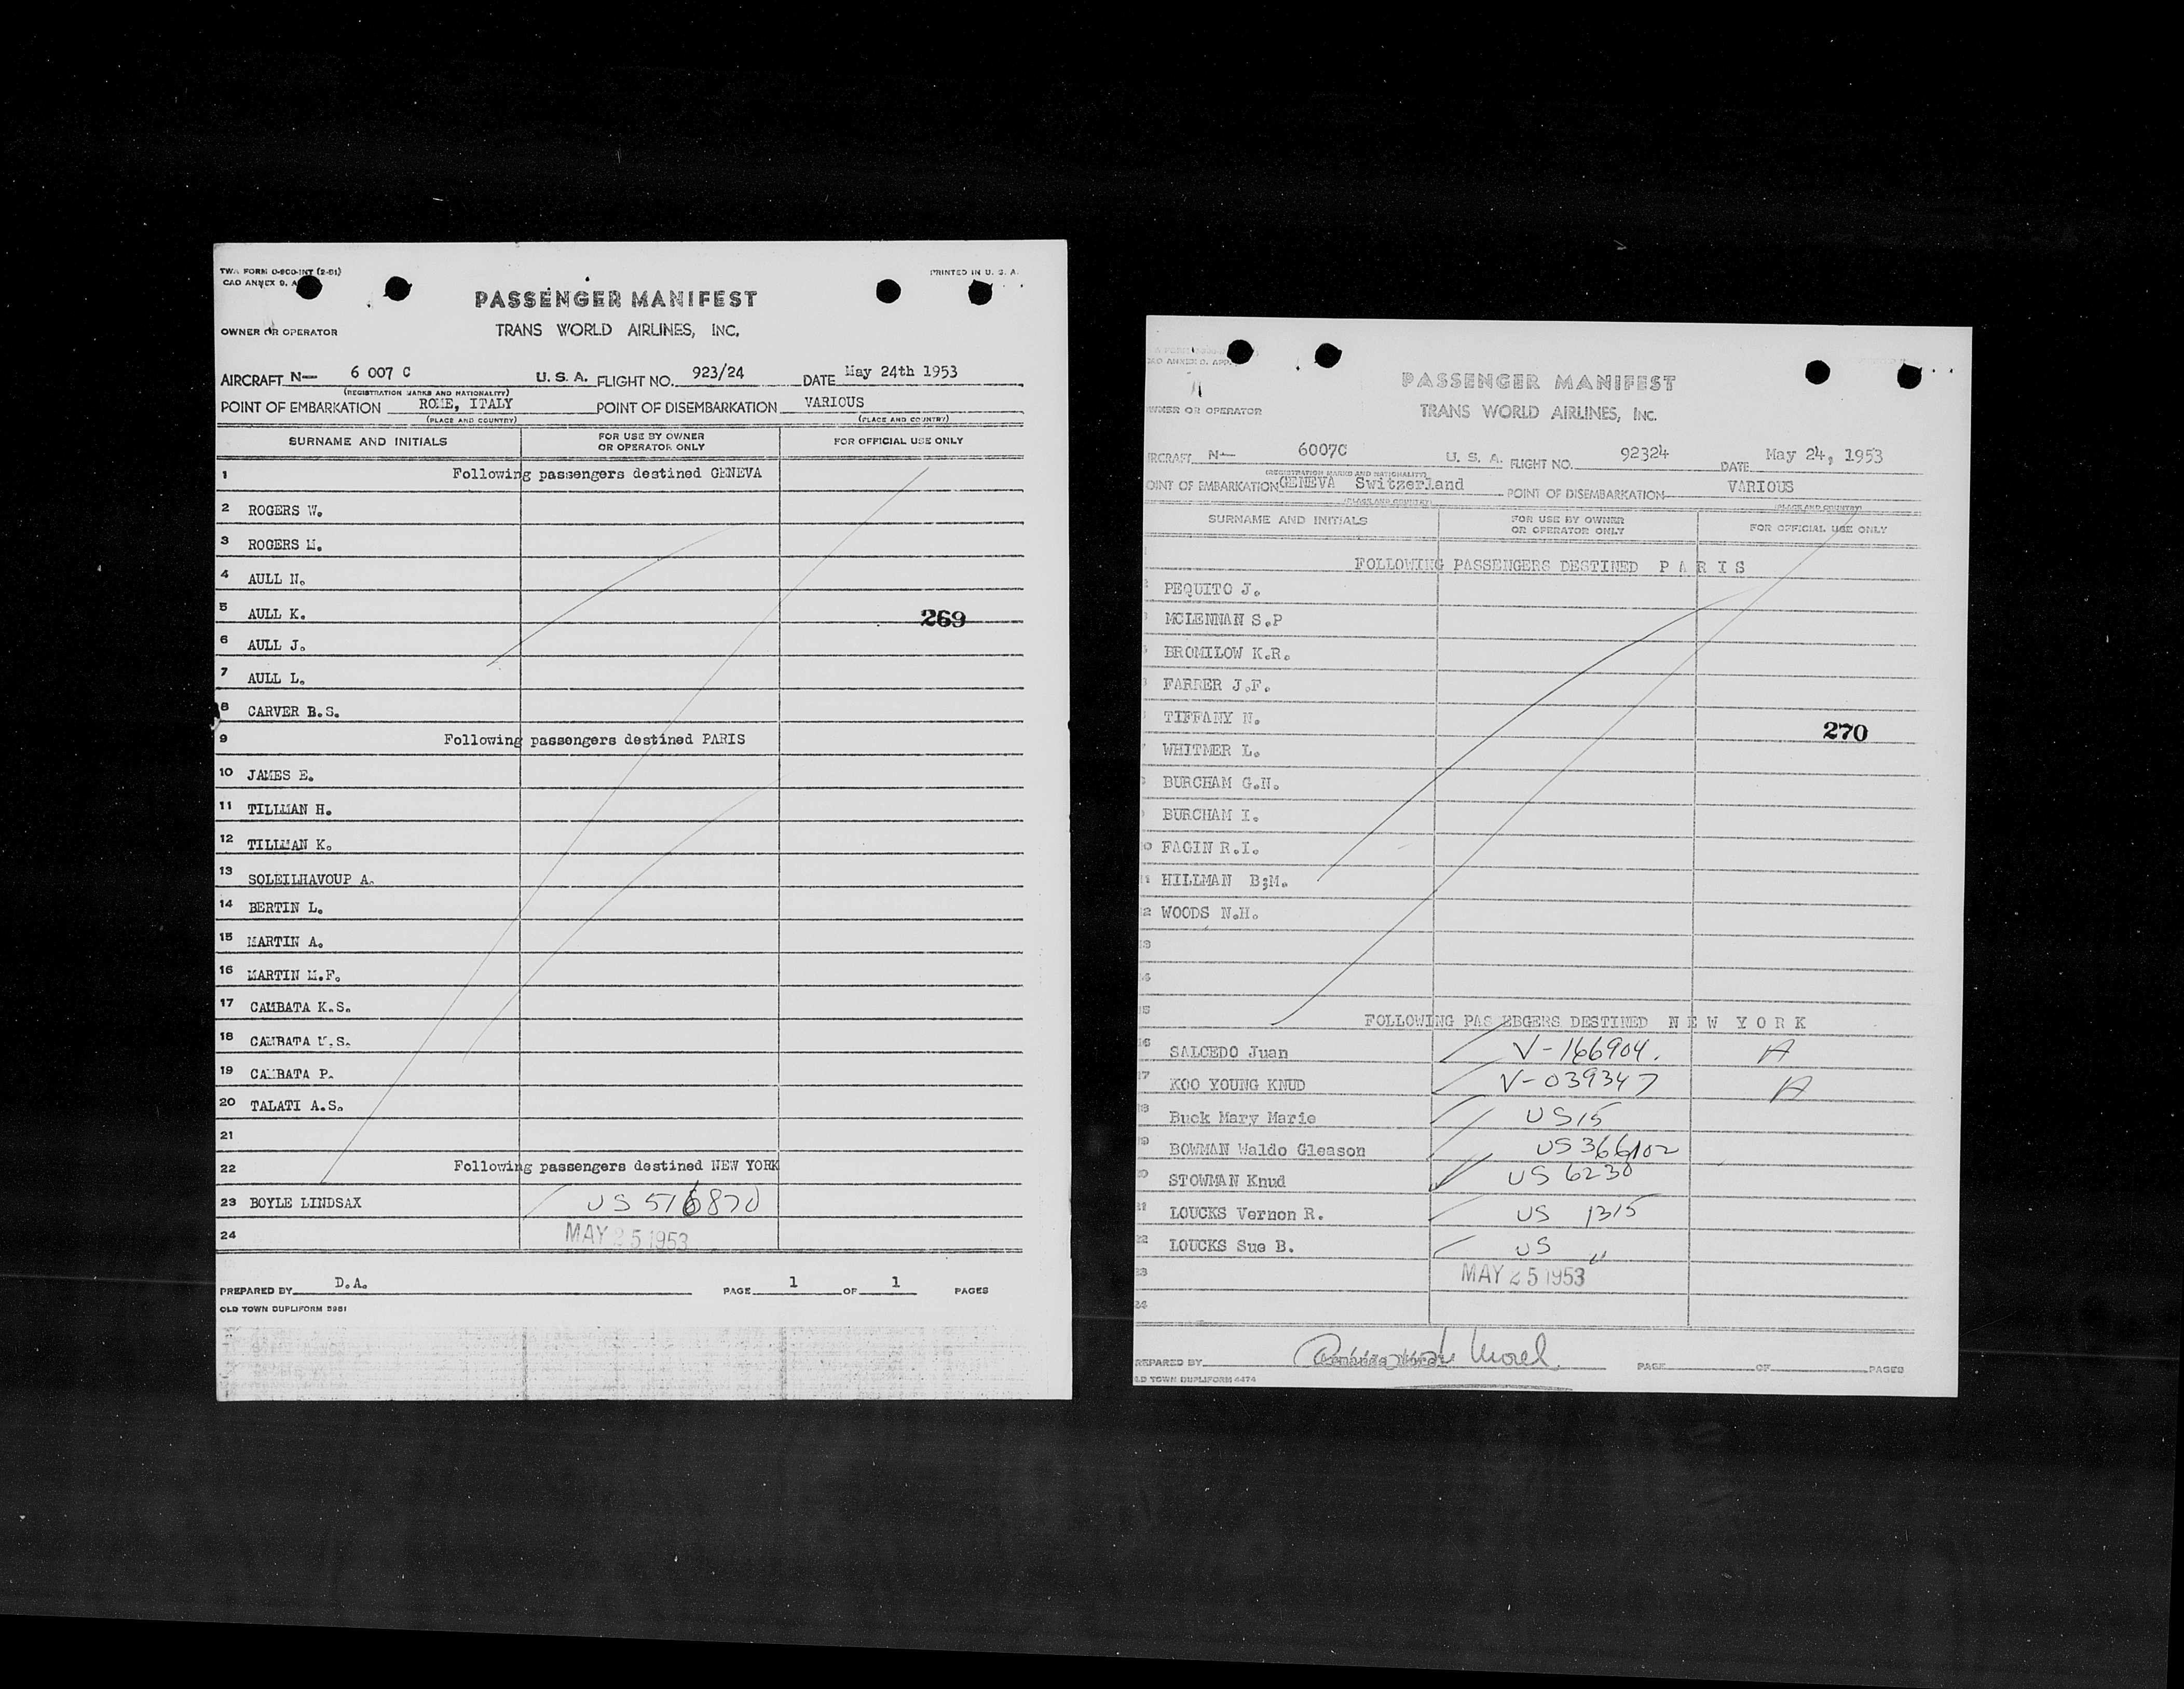 TWA FORM O-800-INT (2-51)
PRINTED IN U. S. A.
CAO ANNEX 9. A
PASSENGER MANIFEST
OWNER OR OPERATOR TRANS WORLD AIRLINES, INC.
AIRCRAFT N— 6 007 C U. S. A. FLIGHT NO. 923/24 DATE May 24th 1953
(REGISTRATION MARKS AND NATIONALITY)
POINT OF EMBARKATION ROME, ITALY POINT OF DISEMBARKATION VARIOUS
(PLACE AND COUNTRY) (PLACE AND COUNTRY)
SURNAME AND INITIALS FOR USE BY OWNER OR OPERATOR ONLY FOR OFFICIAL USE ONLY
1 Following passengers destined GENEVA
2 ROGERS W.
3 ROGERS M.
4 AULL N.
5 AULL K. 269
6 AULL J.
7 AULL L.
8 CARVER B.S.
9 Following passengers destined PARIS
10 JAMES E.
11 TILLMAN H.
12 TILLMAN K.
13 SOLEILHAVOUP A.
14 BERTIN L.
15 MARTIN A.
16 MARTIN M.F.
17 CAMBATA K.S.
18 CAMBATA M.S.
19 CAMBATA P.
20 TALATI A.S.
21
22 Following passengers destined NEW YORK
23 BOYLE LINDSAX US 516870
24 MAY 25 1953
PREPARED BY D.A. PAGE 1 OF 1 PAGES
OLD TOWN DUPLIFORM 5981
PASSENGER MANIFEST
WNER OR OPERATOR TRANS WORLD AIRLINES, INC.
IRCRAFT N— 6007C U. S. A. FLIGHT NO. 92324 DATE May 24, 1953
(REGISTRATION MARKS AND NATIONALITY)
OINT OF EMBARKATION GENEVA Switzerland POINT OF DISEMBARKATION VARIOUS
(PLACE AND COUNTRY) (PLACE AND COUNTRY)
SURNAME AND INITIALS FOR USE BY OWNER OR OPERATOR ONLY FOR OFFICIAL USE ONLY
FOLLOWING PASSENGERS DESTINED P A R I S
PEQUITO J.
MCLENNAN S.P
BROMILOW K.R.
FARRER J.F.
TIFFANY N.
270
WHITMER L.
BURCHAM G.N.
BURCHAM I.
FAGIN R.I.
HILLMAN B;M.
WOODS N.H.
FOLLOWING PAS EBGERS DESTINED N E W Y O R K
SALCEDO Juan V-166904. A
KOO YOUNG KNUD V-039347 A
Buck Mary Marie US15
BOWMAN Waldo Gleason US 366102
STOWMAN Knud US 6230
LOUCKS Vernon R. US 1315
LOUCKS Sue B. US "
MAY 25 1953
REPARED BY Morel PAGE OF PAGES
LD TOWN DUPLIFORM 4474